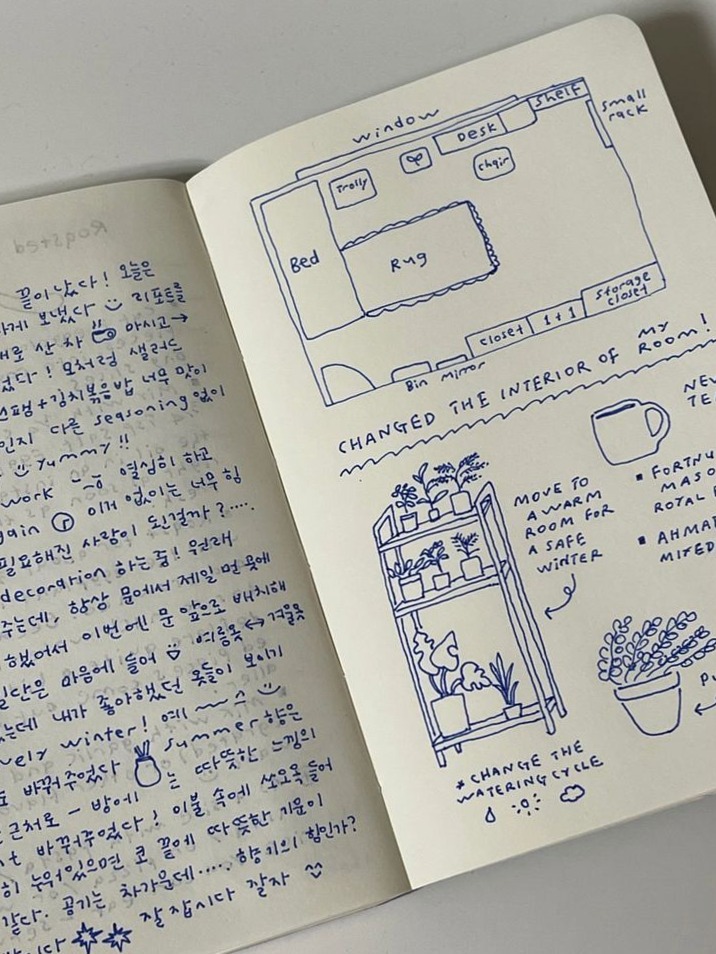 끝이 났다! 오늘은
하게 보냈다 리포트를
새로 산 차 마시고→
었다! 모처럼 샐러드
스팸+김치볶음밥 너무 많이
인지 다른 seasoning 없이
yummy!!
work 열심히 하고
again r 이거 없이는 너무 힘
필요해진 사람이 된걸까?....
decorarion 하는 중! 원래
주는데, 항상 문에서 제일 먼 쪽에
했어서 이번엔 문 앞으로 배치해
일단은 마음에 들어 여름옷↔겨울옷
는데 내가 좋아했던 옷들이 보이기
vely winter! 예
바꿔주었다 summer 향은
근처로 - 방에 는 따뜻한 느낌의
바꿔주었다! 이불 속에 쏘오옥 들어
히 누워있으면 코 끝에 따뜻한 기운이
같다. 공기는 차가운데..... 향기의 힘인가?
다 잘 잡시다 잘자
window
Shelf
small
rack
Desk
chair
Trolly
Bed
Rug
Storage
closet
closet
1+1
Bin
Mirror
CHANGED THE INTERIOR OF MY
ROOM!
NE
TE
MOVE TO
A WARM
ROOM FOR
A SAFE
WINTER
▪ FORTNU
MASO
ROYAL
▪ AHMA
MIXED
PU
*CHANGE THE
WATERING CYCLE